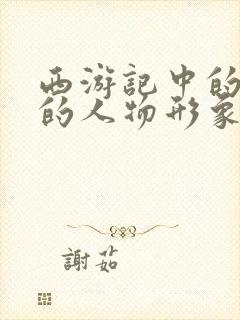 西游記中的
的人物形象
謝茹